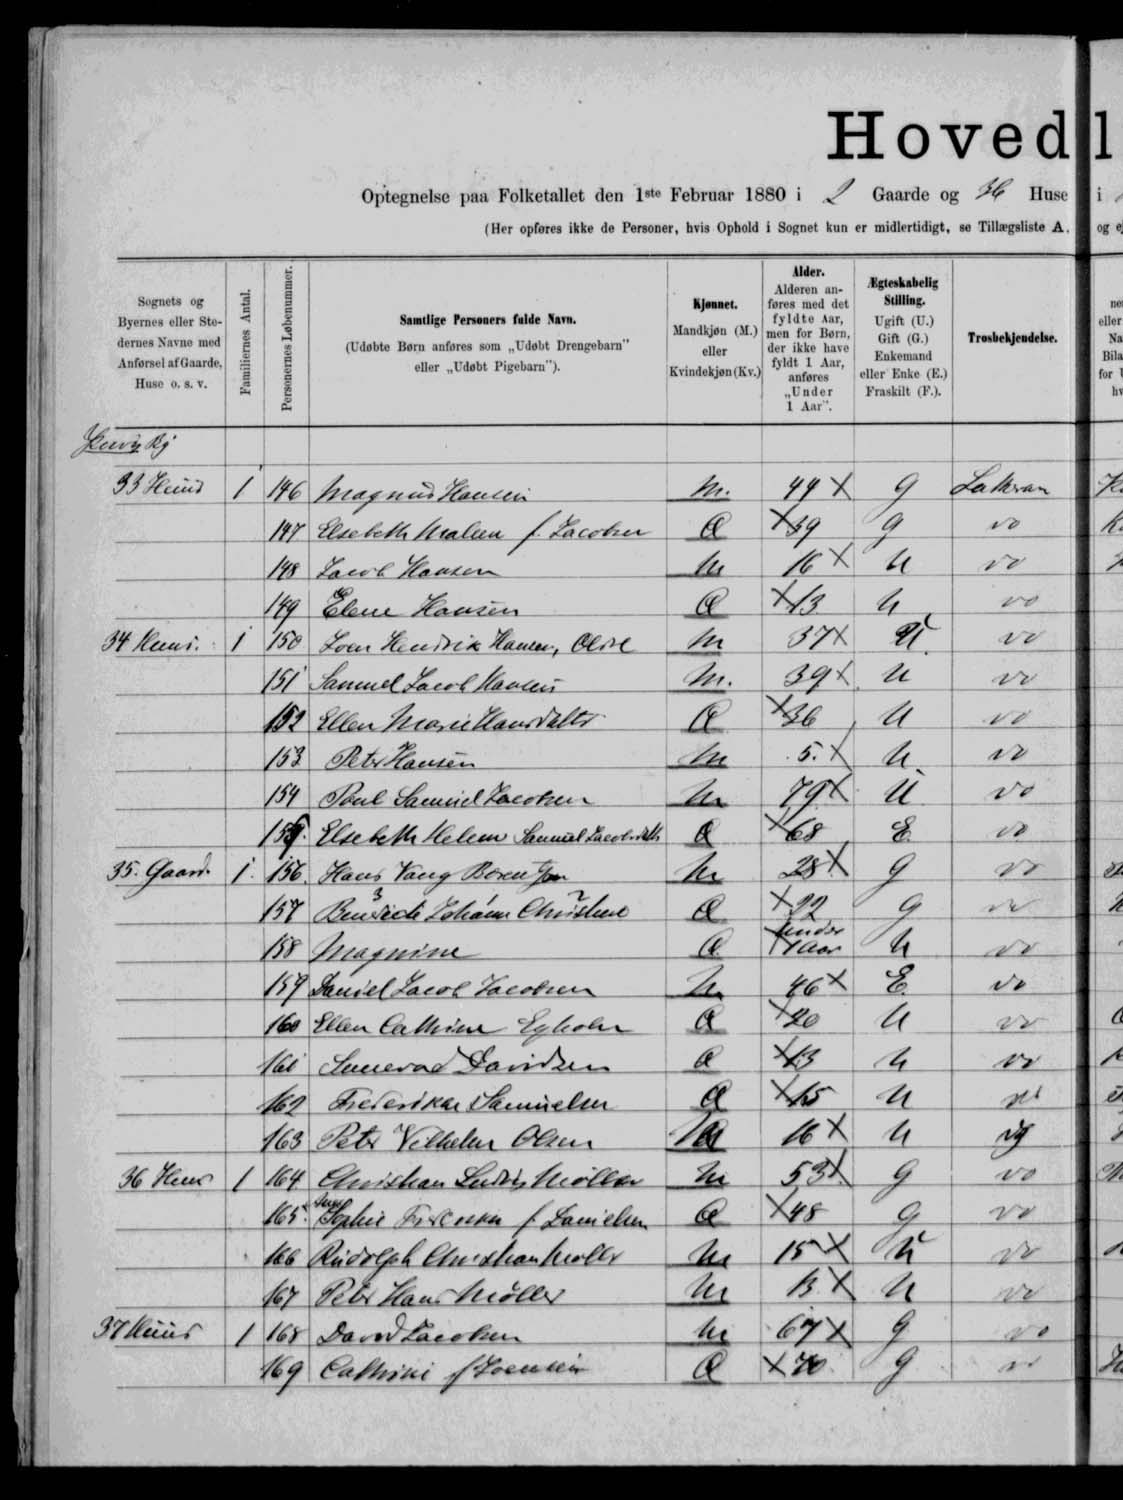 Hoved
Optegnelse paa Folketallet den 1ste Februar 1880 i 2 Gaarde og 36 Huse i
(Her opføres ikke de Personer, hvis Ophold i Sognet kun er midlertidigt, se Tillægsliste A. og
Sognets og Byernes eller Stedernes Navne med Anførsel af Gaarde, Huse o. s. v.
Familiernes Antal.
Personernes Løbenummer.
Samtlige Personers fulde Navn.
(Udøbte Børn anføres som „Udøbt Drengebarn"
eller „Udøbt Pigebarn").
Kjønnet.
Mandkjøn (M.) eller Kvindekjøn (Kv.)
Alder.
Alderen anføres med det fyldte Aar, men for Børn, der ikke have fyldt 1 Aar, anføres „Under 1 Aar".
Ægteskabelig Stilling.
Ugift (U.) Gift (G.) Enkemand eller Enke (E.) Fraskilt (F.).
Trosbekjendelse.
By
33 Huus 1 146 Magnus Hansen M. 44 X G Lutheran
147 Elsebeth Malene f. Jacobsen Q X 39 G do
148 Jacob Hansen M 16 X U do
149 Elene Hansen Q X 13 U do
34 Huus. 1 150 Joen Hendrik Hansen, M 37 X U do
151 Samuel Jacob Hansen M. 39 X U do
152 Ellen Marie Hansdatter Q X 36 U do
153 Peter Hansen M 5. X U do
154 Poul Samuel Jacobsen M 79 X U do
155. Elsebeth Helene Samuel Jacobsdatter Q X 68 E. do
35. Gaard. 1. 156. Hans Vang Berentsen M 28 X G do
157 Johanne Christine Q X 22 G do
158 Magnine Q X under 1 Aar U do
159 Daniel Jacob Jacobsen M 46 X E. do
160 Ellen Cathrine Egholm Q X 20 U do
161 Sunneva Davidsen Q X 13 U do
162 Frederikke Samuelsen Q X 15 U do
163 Peter Vilhelm Olsen M 16 X U do
36 Huus 1 164 Christian Ludvig Møller M 53 X G do
165. Sophie Frederikke f. Danielsen Q X 48 G do
166 Rudolph Christian Møller M 15 X U do
167 Peter Hans Møller M 13 X U do
37 Huus 1 168 David Jacobsen M 67 X G do
169 Cathrine f Joensen Q X 70 G do